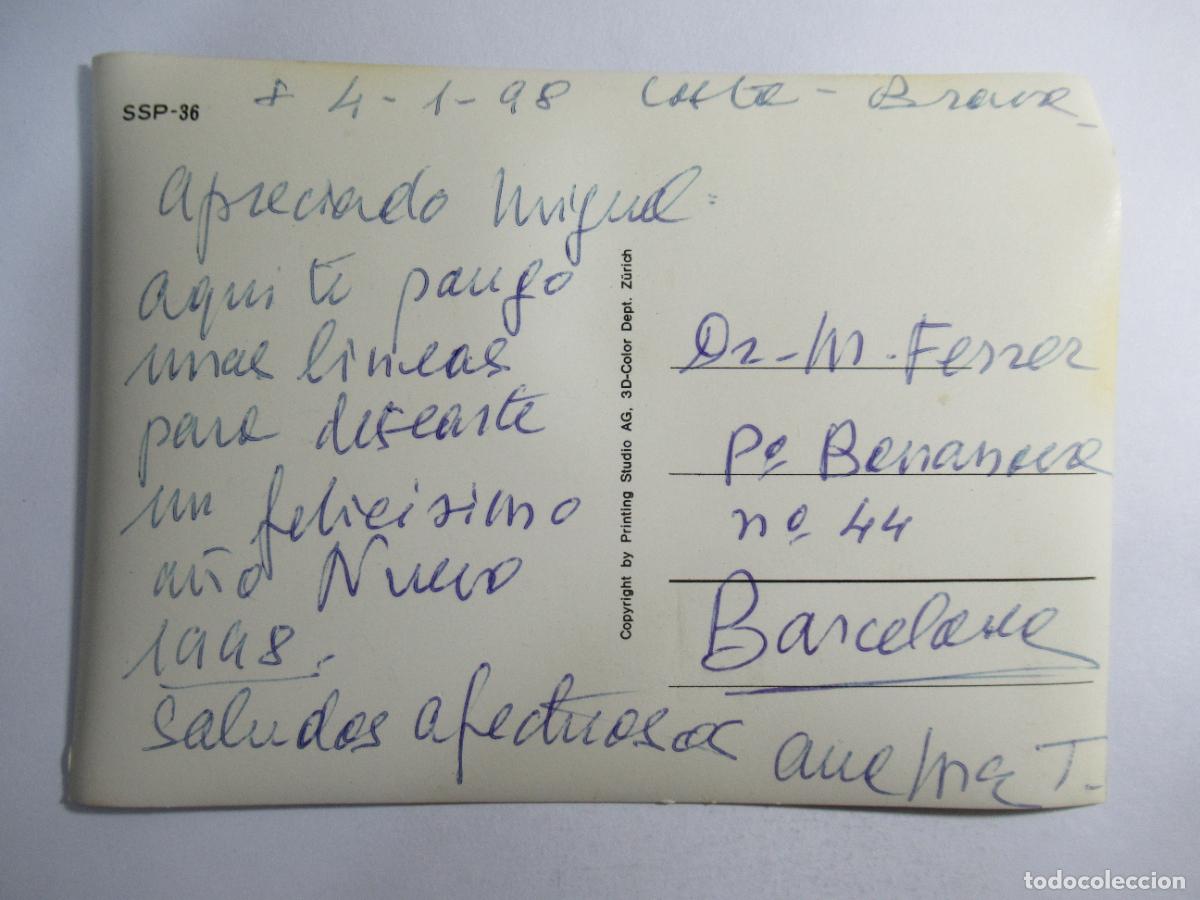 SSP-36
+ 4-1-98 Costa - Brava
Apreciado Miguel:
aqui te pongo
unas lineas
para desearte
un felicisimo
año Nuevo
1998.
Saludos afectuosos
Ana Mª T.
Copyright by Printing Studio AG, 3D-Color Dept. Zürich
Dr. M. Ferrer
Pº Bonanova
nº 44
Barcelona
todocoleccion